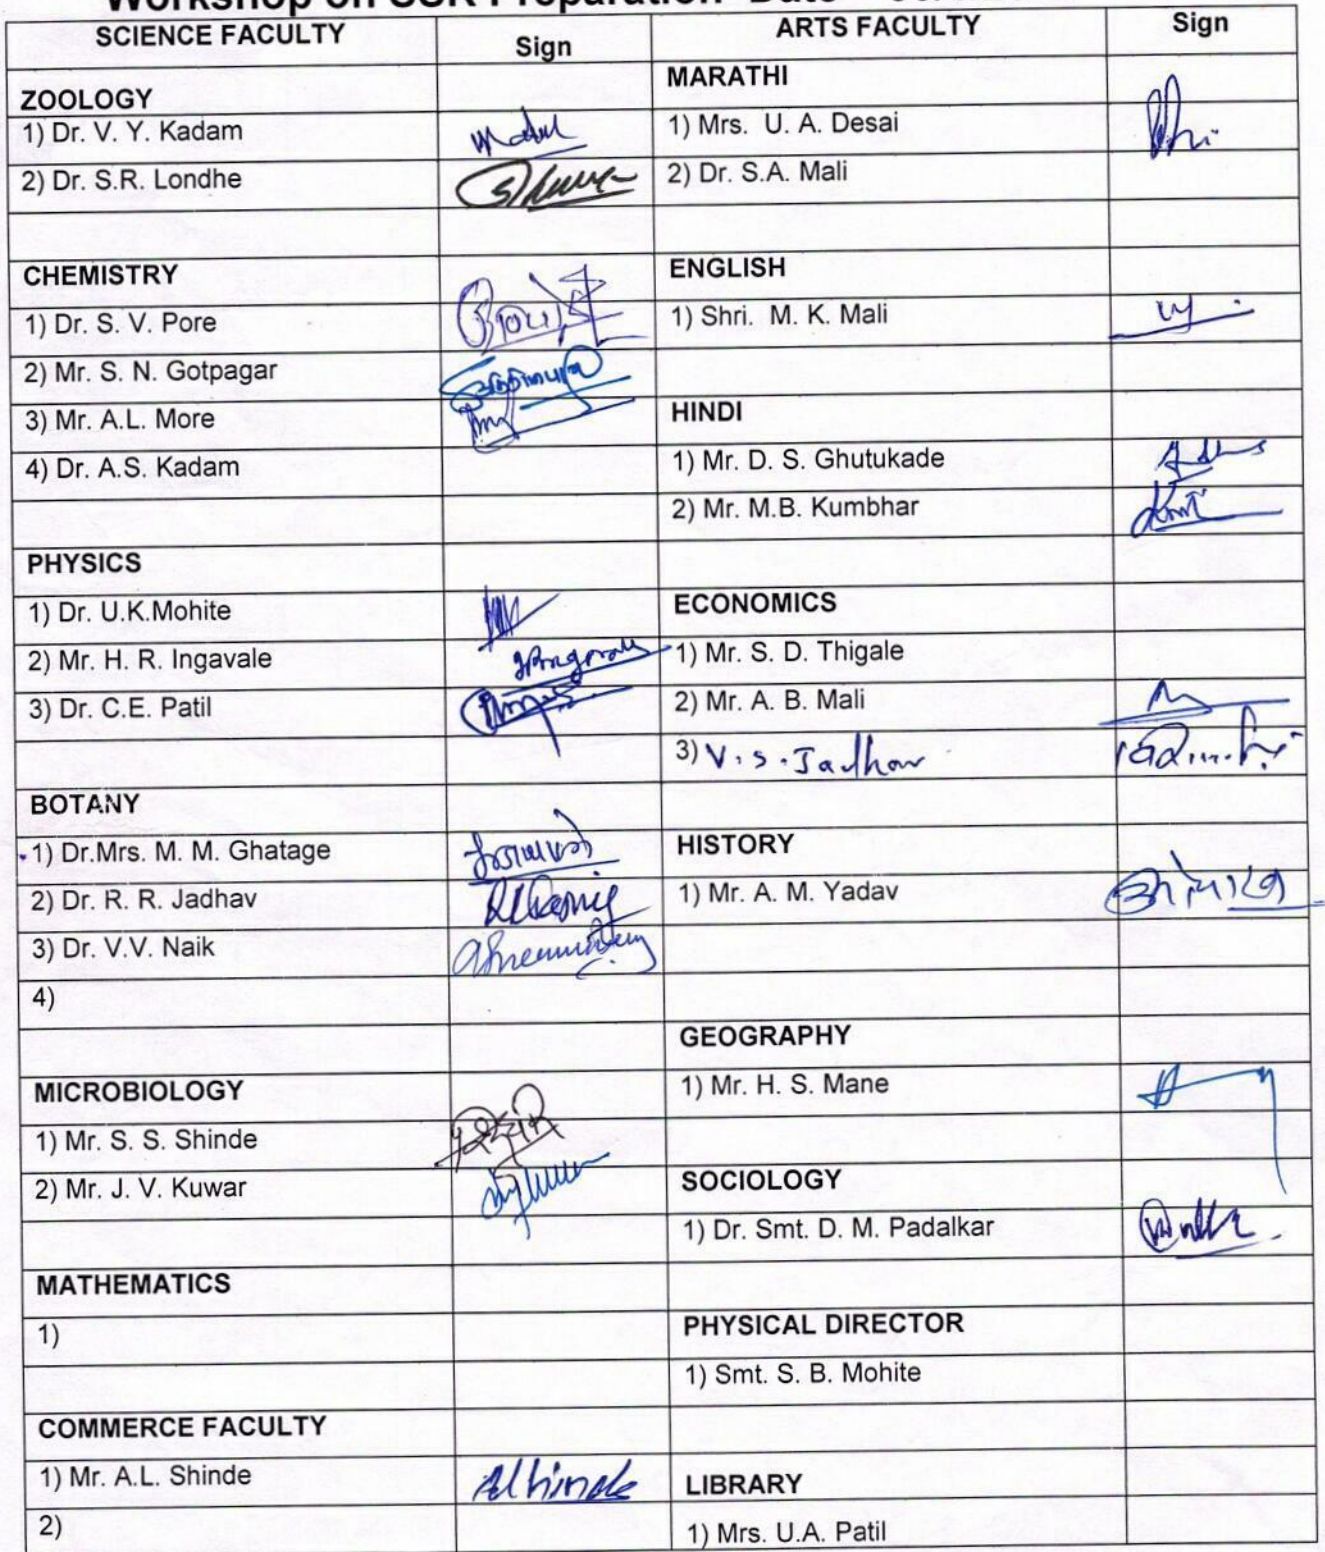 Workshop on SSR Preparation Date
SCIENCE FACULTY Sign ARTS FACULTY Sign
MARATHI
ZOOLOGY
1) Dr. V. Y. Kadam 1) Mrs. U. A. Desai
2) Dr. S.R. Londhe 2) Dr. S.A. Mali
CHEMISTRY ENGLISH
1) Dr. S. V. Pore 1) Shri. M. K. Mali
2) Mr. S. N. Gotpagar
3) Mr. A.L. More HINDI
4) Dr. A.S. Kadam 1) Mr. D. S. Ghutukade
2) Mr. M.B. Kumbhar
PHYSICS
1) Dr. U.K.Mohite ECONOMICS
2) Mr. H. R. Ingavale 1) Mr. S. D. Thigale
3) Dr. C.E. Patil 2) Mr. A. B. Mali
3) V.S. Jadhav
BOTANY
1) Dr.Mrs. M. M. Ghatage HISTORY
2) Dr. R. R. Jadhav 1) Mr. A. M. Yadav
3) Dr. V.V. Naik
4)
GEOGRAPHY
MICROBIOLOGY 1) Mr. H. S. Mane
1) Mr. S. S. Shinde
2) Mr. J. V. Kuwar SOCIOLOGY
1) Dr. Smt. D. M. Padalkar
MATHEMATICS
1) PHYSICAL DIRECTOR
1) Smt. S. B. Mohite
COMMERCE FACULTY
1) Mr. A.L. Shinde AlShinde LIBRARY
2) 1) Mrs. U.A. Patil